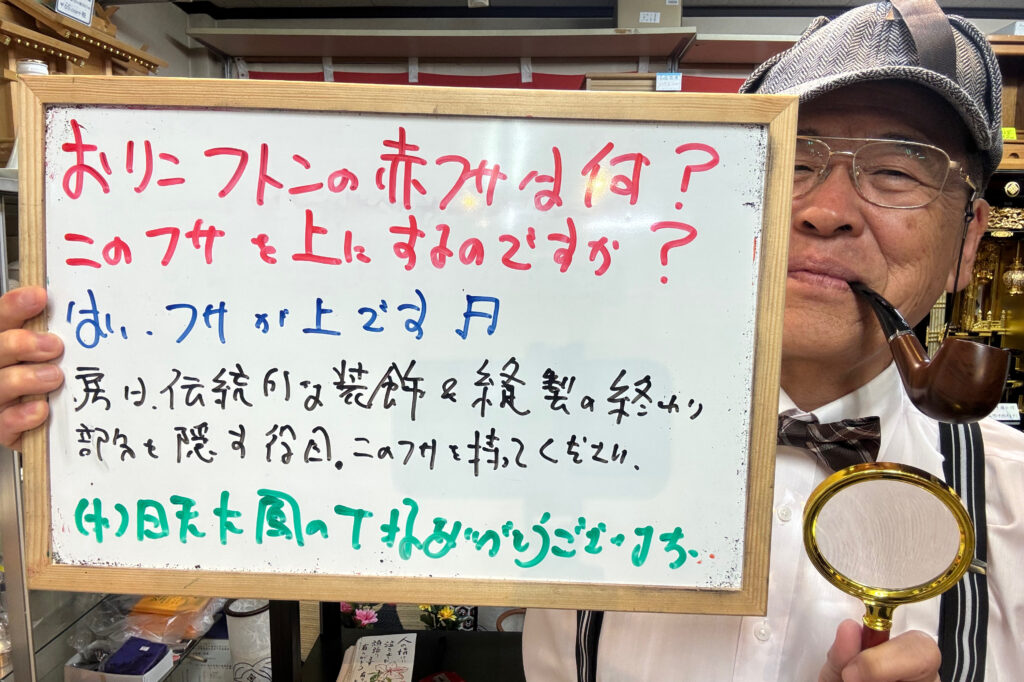 おリンフトンの赤フサは何？
このフサを上にするのですか？
はい、フサが上です
房は、伝統的な装飾と縫製の終わり
部分を隠す役目。このフサを持ってください。
(木)日天大風のTねありがとうございます。